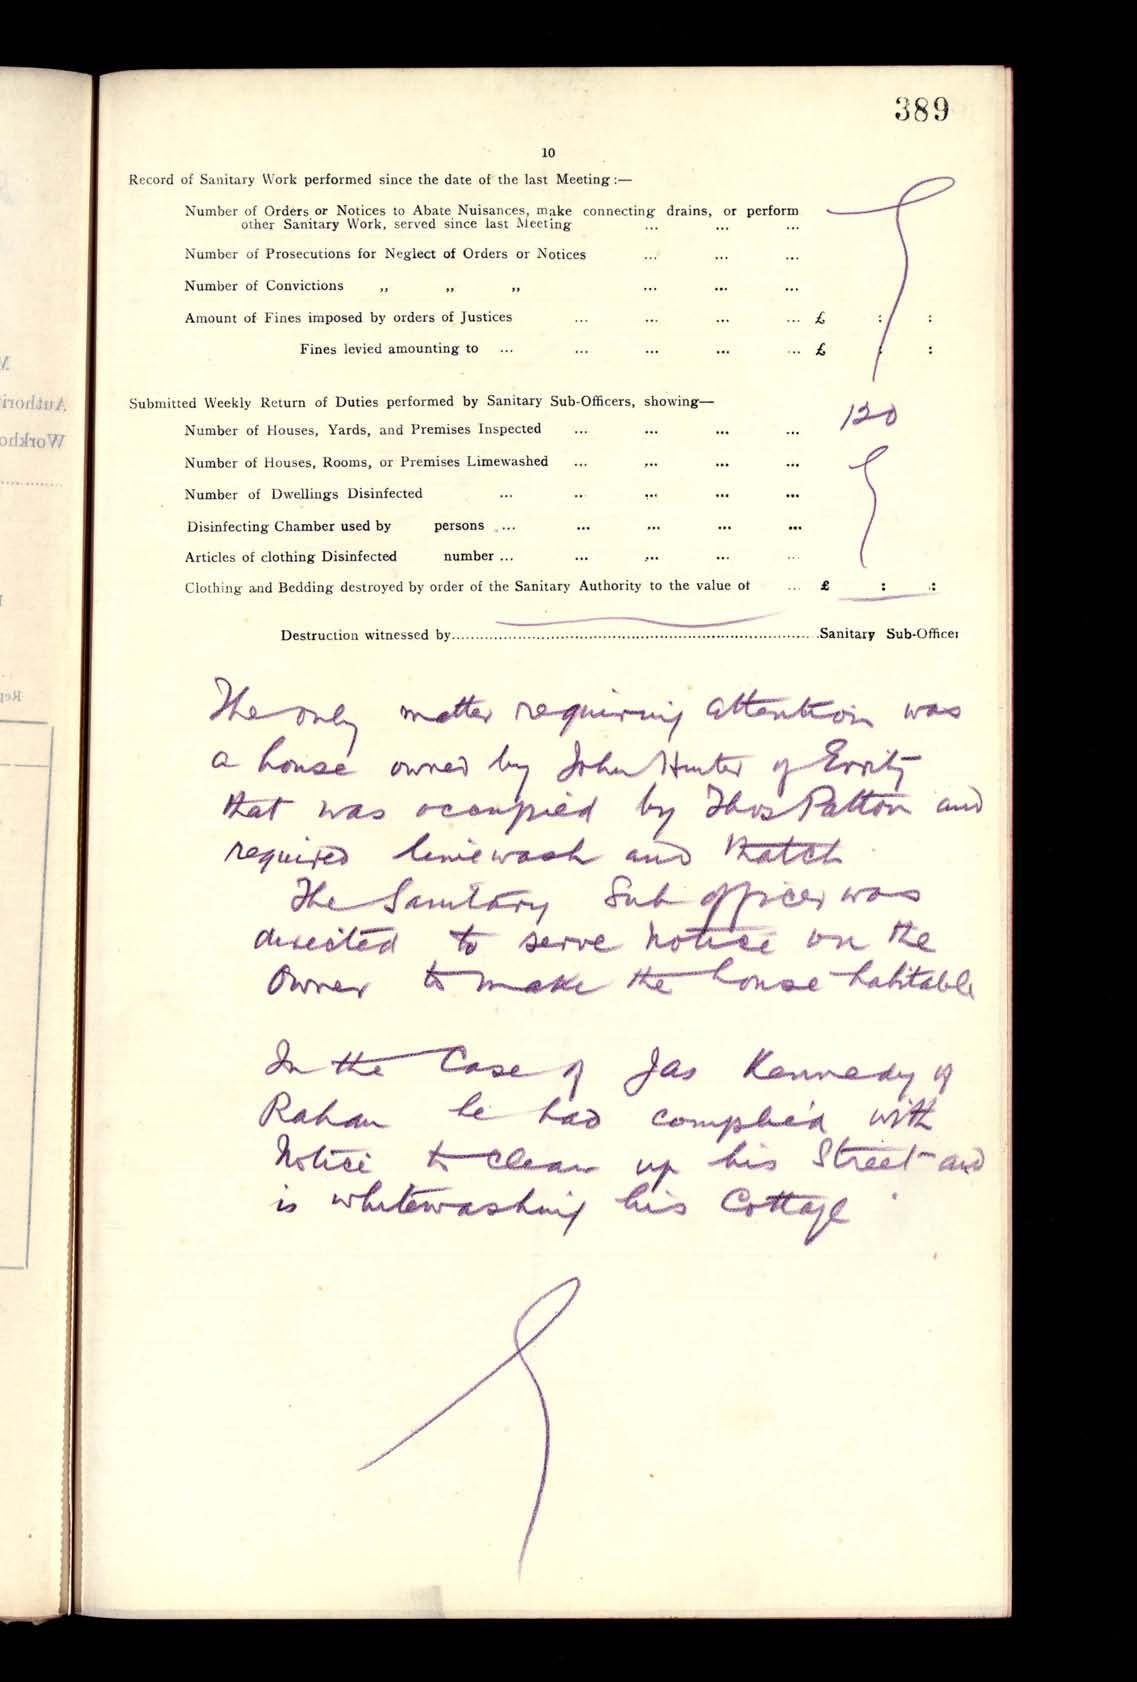 389
10
Record of Sanitary Work performed since the date of the last Meeting :—
Number of Orders or Notices to Abate Nuisances, make connecting drains, or perform
other Sanitary Work, served since last Meeting ... ... ...
Number of Prosecutions for Neglect of Orders or Notices ... ... ...
Number of Convictions ,, ,, ,, ... ... ...
Amount of Fines imposed by orders of Justices ... ... ... ... £ : :
Fines levied amounting to ... ... ... ... ... £ : :
Submitted Weekly Return of Duties performed by Sanitary Sub-Officers, showing—
Number of Houses, Yards, and Premises Inspected ... ... ... ... 120
Number of Houses, Rooms, or Premises Limewashed ... ... ... ...
Number of Dwellings Disinfected ... ... ... ... ...
Disinfecting Chamber used by persons ... ... ... ... ...
Articles of clothing Disinfected number ... ... ... ... ...
Clothing and Bedding destroyed by order of the Sanitary Authority to the value of ... £ : :
Destruction witnessed by.......................................Sanitary Sub-Officer
The only matter requiring attention was
a house owned by John Hunter of Errity
that was occupied by Thos Patton and
required limewash and thatch
The Sanitary Sub officer was
directed to serve notice on the
Owner to make the house habitable
In the Case of Jas Kennedy of
Rahan he had complied with
Notice to clean up his Street and
is whitewashing his Cottage